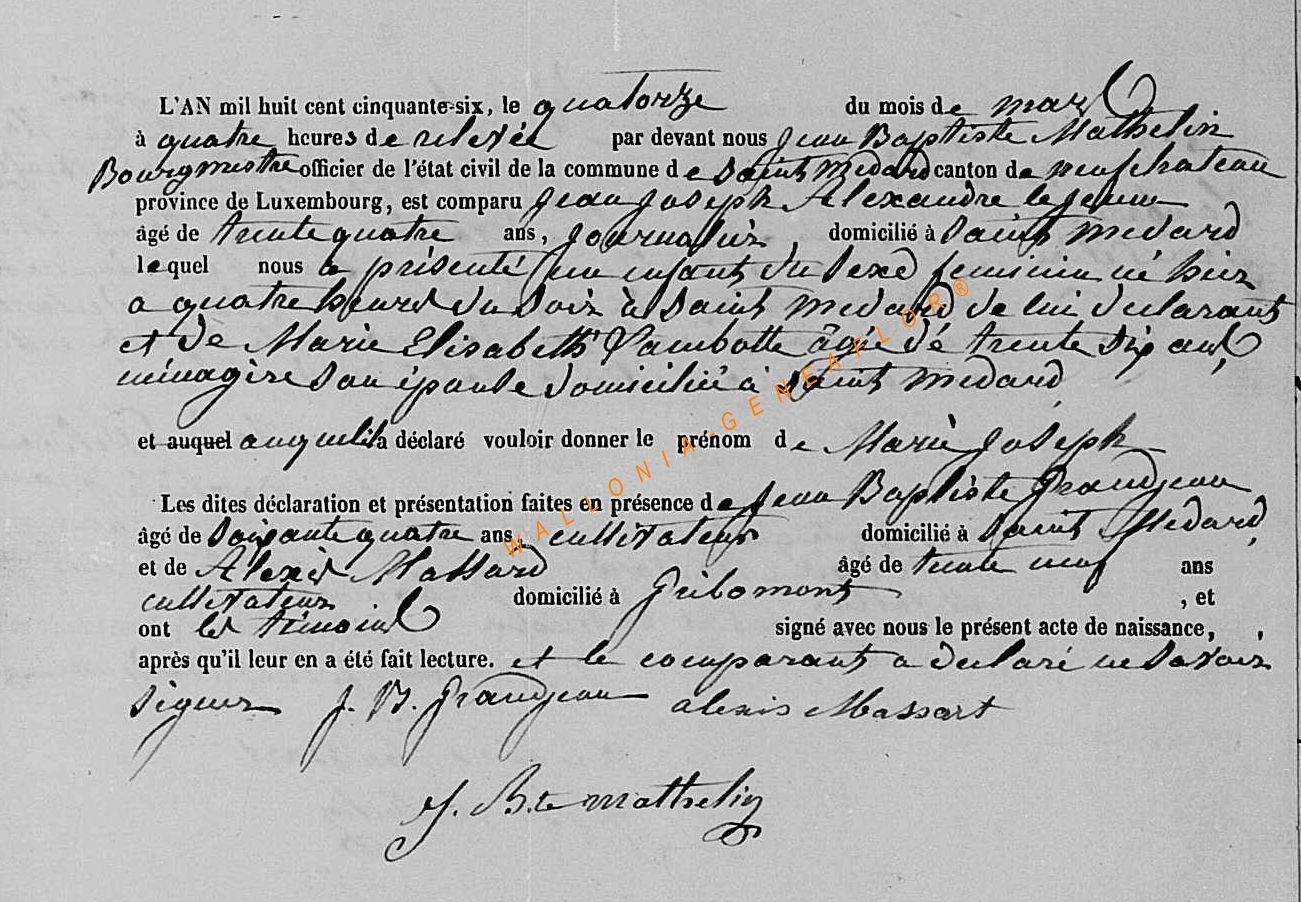 L'AN mil huit cent cinquante-six, le quatorze du mois de mars
à quatre heures de relevée par devant nous Jean Baptiste Mathelin
Bourgmestre officier de l'état civil de la commune de Saint Medard canton de neufchateau
province de Luxembourg, est comparu Jean Joseph Alexandre le jeune
âgé de trente quatre ans, journalier, domicilié à Saint Medard
lequel nous a présenté un enfant du sexe feminin né hier
a quatre heures du soir à Saint Medard de lui declarant
et de Marie Elisabeth Lambotte âgée de trente six ans,
ménagère son épouse domiciliée à Saint Medard
et auquel auquel il a déclaré vouloir donner le prénom de Marie Joseph
Les dites déclaration et présentation faites en présence de Jean Baptiste Grandjean
âgé de soixante quatre ans, cultivateur domicilié à Saint Medard,
et de Alexis Massard âgé de trente neuf ans
cultivateur domicilié à Gribomont, et
ont les témoins signé avec nous le présent acte de naissance,
après qu'il leur en a été fait lecture. et le comparant a declaré ne savoir
signer J. B. Grandjean alexis Massart
J. B.te mathelin
WALLONIA-GENEAFLOR®